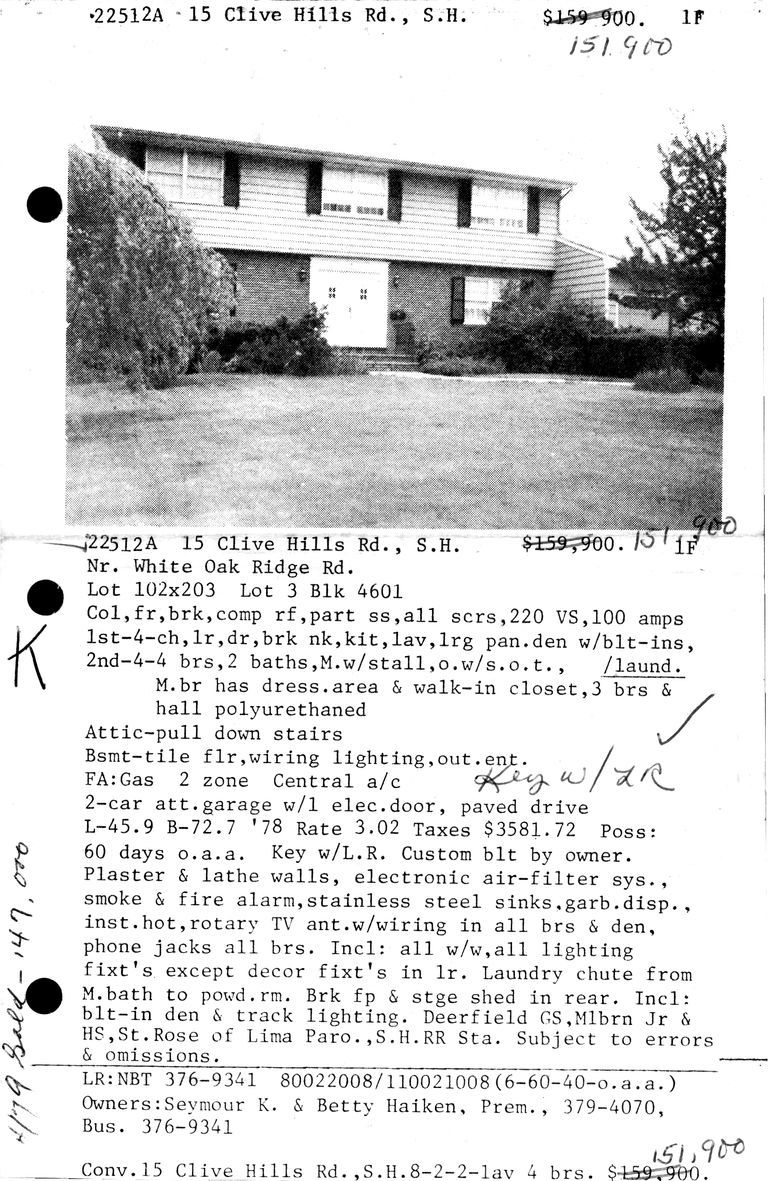 22512A 15 Clive Hills Rd., S.H. $159 900. 1F
151.900
22512A 15 Clive Hills Rd., S.H. $159,900. 151 900 1F
Nr. White Oak Ridge Rd.
Lot 102x203 Lot 3 Blk 4601
Col,fr,brk,comp rf,part ss,all scrs,220 VS,100 amps
1st-4-ch,lr,dr,brk nk,kit,lav,lrg pan.den w/blt-ins,
2nd-4-4 brs,2 baths,M.w/stall,o.w/s.o.t., /laund.
M.br has dress.area & walk-in closet,3 brs &
hall polyurethaned
Attic-pull down stairs
Bsmt-tile flr,wiring lighting,out.ent.
FA:Gas 2 zone Central a/c Key w/LR
2-car att.garage w/1 elec.door, paved drive
L-45.9 B-72.7 '78 Rate 3.02 Taxes $3581.72 Poss:
60 days o.a.a. Key w/L.R. Custom blt by owner.
Plaster & lathe walls, electronic air-filter sys.,
smoke & fire alarm,stainless steel sinks,garb.disp.,
inst.hot,rotary TV ant.w/wiring in all brs & den,
phone jacks all brs. Incl: all w/w,all lighting
fixt's except decor fixt's in lr. Laundry chute from
M.bath to powd.rm. Brk fp & stge shed in rear. Incl:
blt-in den & track lighting. Deerfield GS,Mlbrn Jr &
HS,St.Rose of Lima Paro.,S.H.RR Sta. Subject to errors
& omissions.
LR:NBT 376-9341 80022008/110021008(6-60-40-o.a.a.)
Owners:Seymour K. & Betty Haiken, Prem., 379-4070,
Bus. 376-9341
151,900
Conv.15 Clive Hills Rd.,S.H.8-2-2-lav 4 brs. $159,900.
K
4/79 Sold - 147,000